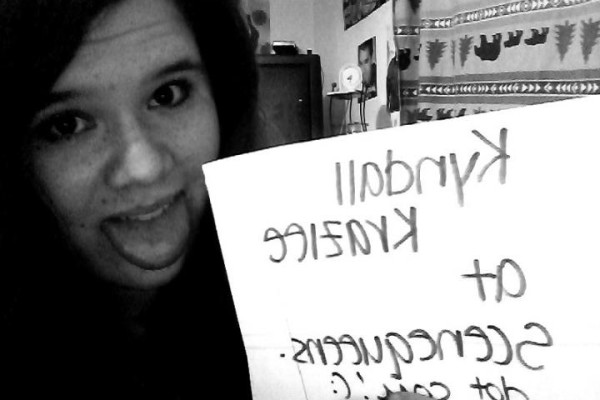 Kyndall
Kraziee
at
Scenequeens.
dot com! C: